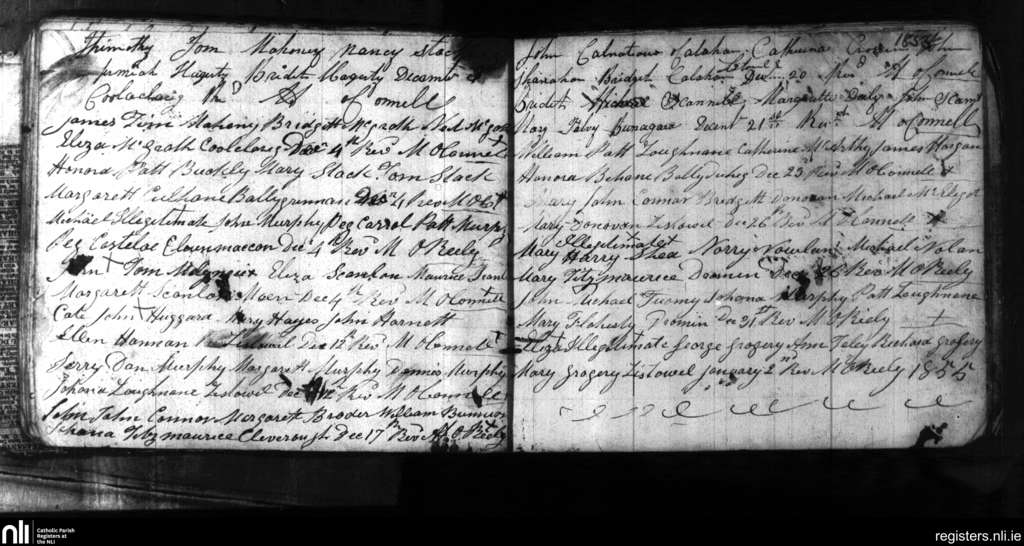 Thimothy Tom Mahoney Nancy Stack
Jerimiah Hagerty Bridet Hagerty Decembr
Coolaclarig Rvd M oConnell
James Tim Mahony Bridget McGrath Ned McGrath
Eliza McGrath Coolclarig Dec 4th Revd M OConnell
Honora Patt Buckly Mary Stack Tom Stack
Margarett Culhane Ballygrennan Dec 4 Revd M OCt
Michael Illegetimate John Murphy Peg Carrol Patt Murphy
Peg Costeloe Clounmaccon Dec 4th Revd M OReely
John Tom Eliza Scanlon Maurice Scanlon
Margarett Scanlon Dec 4th Revd M OConnell
Cate John Huggard Mary Hayes John Harnett
Ellen Hannan Listowel Dec 12th Revd M OConnell
Jerry Dan Murphy Margarett Murphy Dannis Murphy
Johana Loughnane Listowel Dec 12 Revd M OConnell
John John Connor Margarett Broder William
Johana Fitzmaurice Cleverough Dec 17th Revd M OReely
1854
John Calahan Catherine John
Shanahan Bridget Calahan Decr 20 Revd M oConnell
Bridett Scannell Margarette Daly John Scannell
Mary Bunagare Decembr 21st Revd M OConnell
William Patt Loughnane Catherine McCarthy James Horgan
Honora Behane Ballyduhig Dec 23rd Revd M OConnell
Mary John Connor Bridgett Donovan Michael McElygot
Mary Donovan Listowel Dec 26th Revd M OConnell
Illegitimate
Mary Harry Shea Norry Nowlan Michael Nolan
Mary Fitzmaurice Dec 26 Revd M OReely
John Michael Twomy Johana Murphy Patt Loughnane
Mary Flaherty Dromin Dec 31st Revd M OReely
Eliza Illegitimate George Gragery Ann Feley Richard Gragery
Mary Gragery Listowel January 2nd Revd M OReely 1855
nli
Catholic Parish
Registers at
the NLI
registers.nli.ie